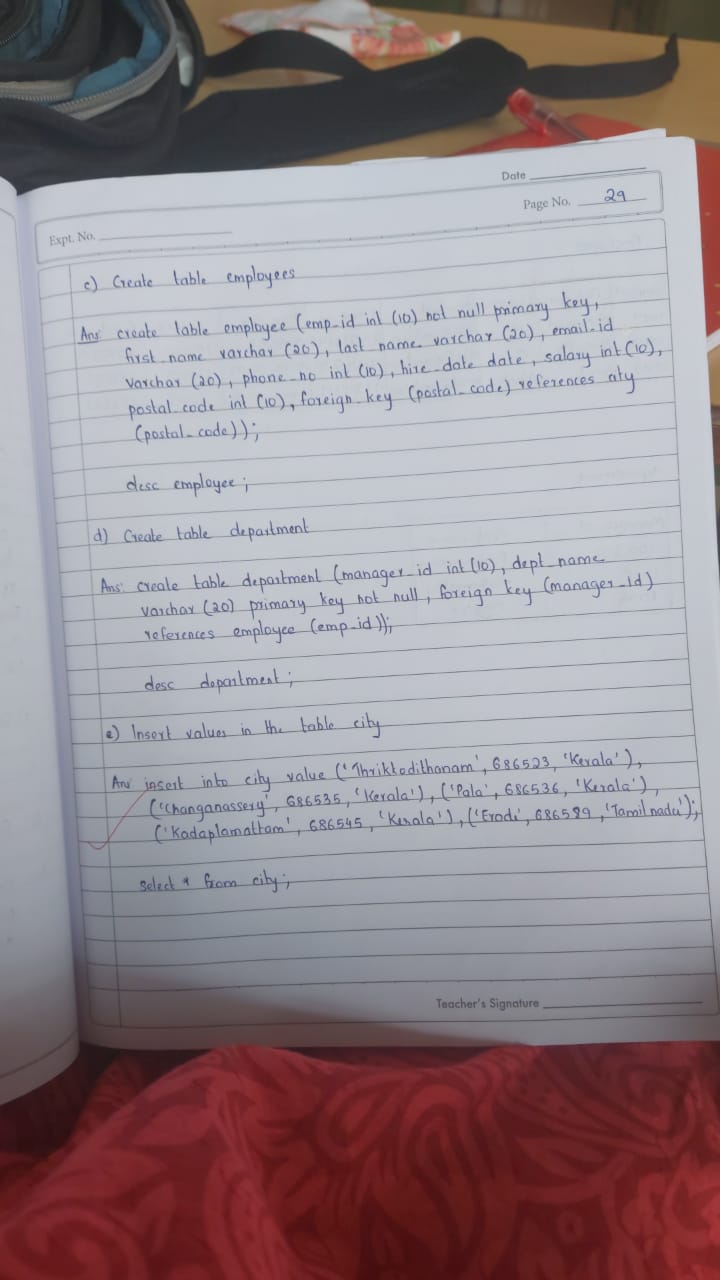 Date
Page No. 29
Expt. No.
c) Create table employees
Ans: create table employee (emp_id int (10) not null primary key,
first_name varchar (20), last_name varchar (20), email_id
varchar (20), phone_no int (10), hire_date date, salary int (10),
postal_code int (10), foreign key (postal_code) references city
(postal_code));
desc employee;
d) Create table department
Ans: create table department (manager_id int (10), dept_name
varchar (20) primary key not null, foreign key (manager_id)
references employee (emp_id));
desc department;
e) Insert values in the table city
Ans insert into city value ('Thrikkodithanam', 686523, 'Kerala'),
('Changanassery', 686535, 'Kerala'), ('Pala', 686536, 'Kerala'),
('Kadaplamattam', 686545, 'Kerala'), ('Erode', 686599, 'Tamil nadu');
Select * from city;
Teacher's Signature